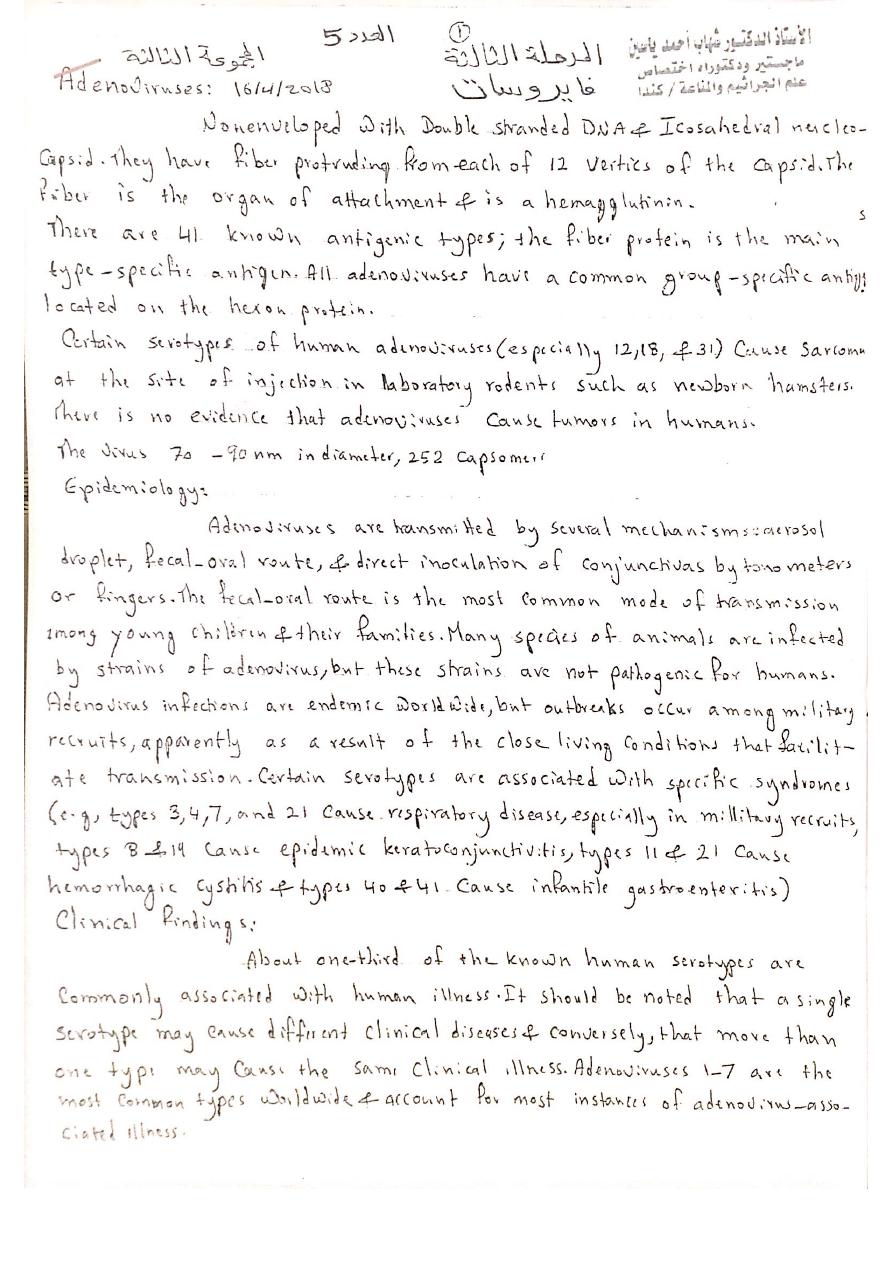 الأستاذ الدكتور شهاب أحمد ياسين
ماجستير ودكتوراه اختصاص
علم الجراثيم والمناعة / كندا
①
المرحلة الثالثة
فايروسات
العدد 5
المجموعة الثالثة
Adenoviruses: 16/4/2018
Nonenveloped with Double stranded DNA & Icosahedral neucleo-
Capsid. They have fiber protruding from each of 12 vertics of the capsid. The
fiber is the organ of attachment & is a hemagglutinin.
There are 41 known antigenic types; the fiber protein is the main
type-specific antigen. All adenoviruses have a common group-specific
located on the hexon protein.
Certain serotypes of human adenoviruses (especially 12,18, & 31) Cause Sarcoma
at the site of injection in laboratory rodents such as newborn hamsters.
There is no evidence that adenoviruses Cause tumors in humans.
The virus 70 -90 nm in diameter, 252 Capsomers
Epidemiology:
Adenoviruses are transmitted by several mechanisms: aerosol
droplet, fecal-oral route, & direct inoculation of conjunctivas by tonometers
or fingers. The fecal-oral route is the most common mode of transmission
among young children & their families. Many species of animals are infected
by strains of adenovirus, but these strains are not pathogenic for humans.
Adenovirus infections are endemic worldwide, but outbreaks occur among military
recruits, apparently as a result of the close living conditions that facilit-
ate transmission. Certain serotypes are associated with specific syndromes
(e.g, types 3,4,7, and 21 Cause respiratory disease, especially in millitary recruits,
types 8 & 19 Cause epidemic keratoconjunctivitis, types 11 & 21 Cause
hemorrhagic cystitis & types 40 & 41 Cause infantile gastroenteritis)
Clinical findings:
About one-third of the known human serotypes are
Commonly associated with human illness. It should be noted that a single
serotype may cause different clinical diseases & conversely, that more than
one type may Cause the same Clinical illness. Adenoviruses 1-7 are the
most Common types worldwide & account for most instances of adenovirus-asso-
ciated illness.